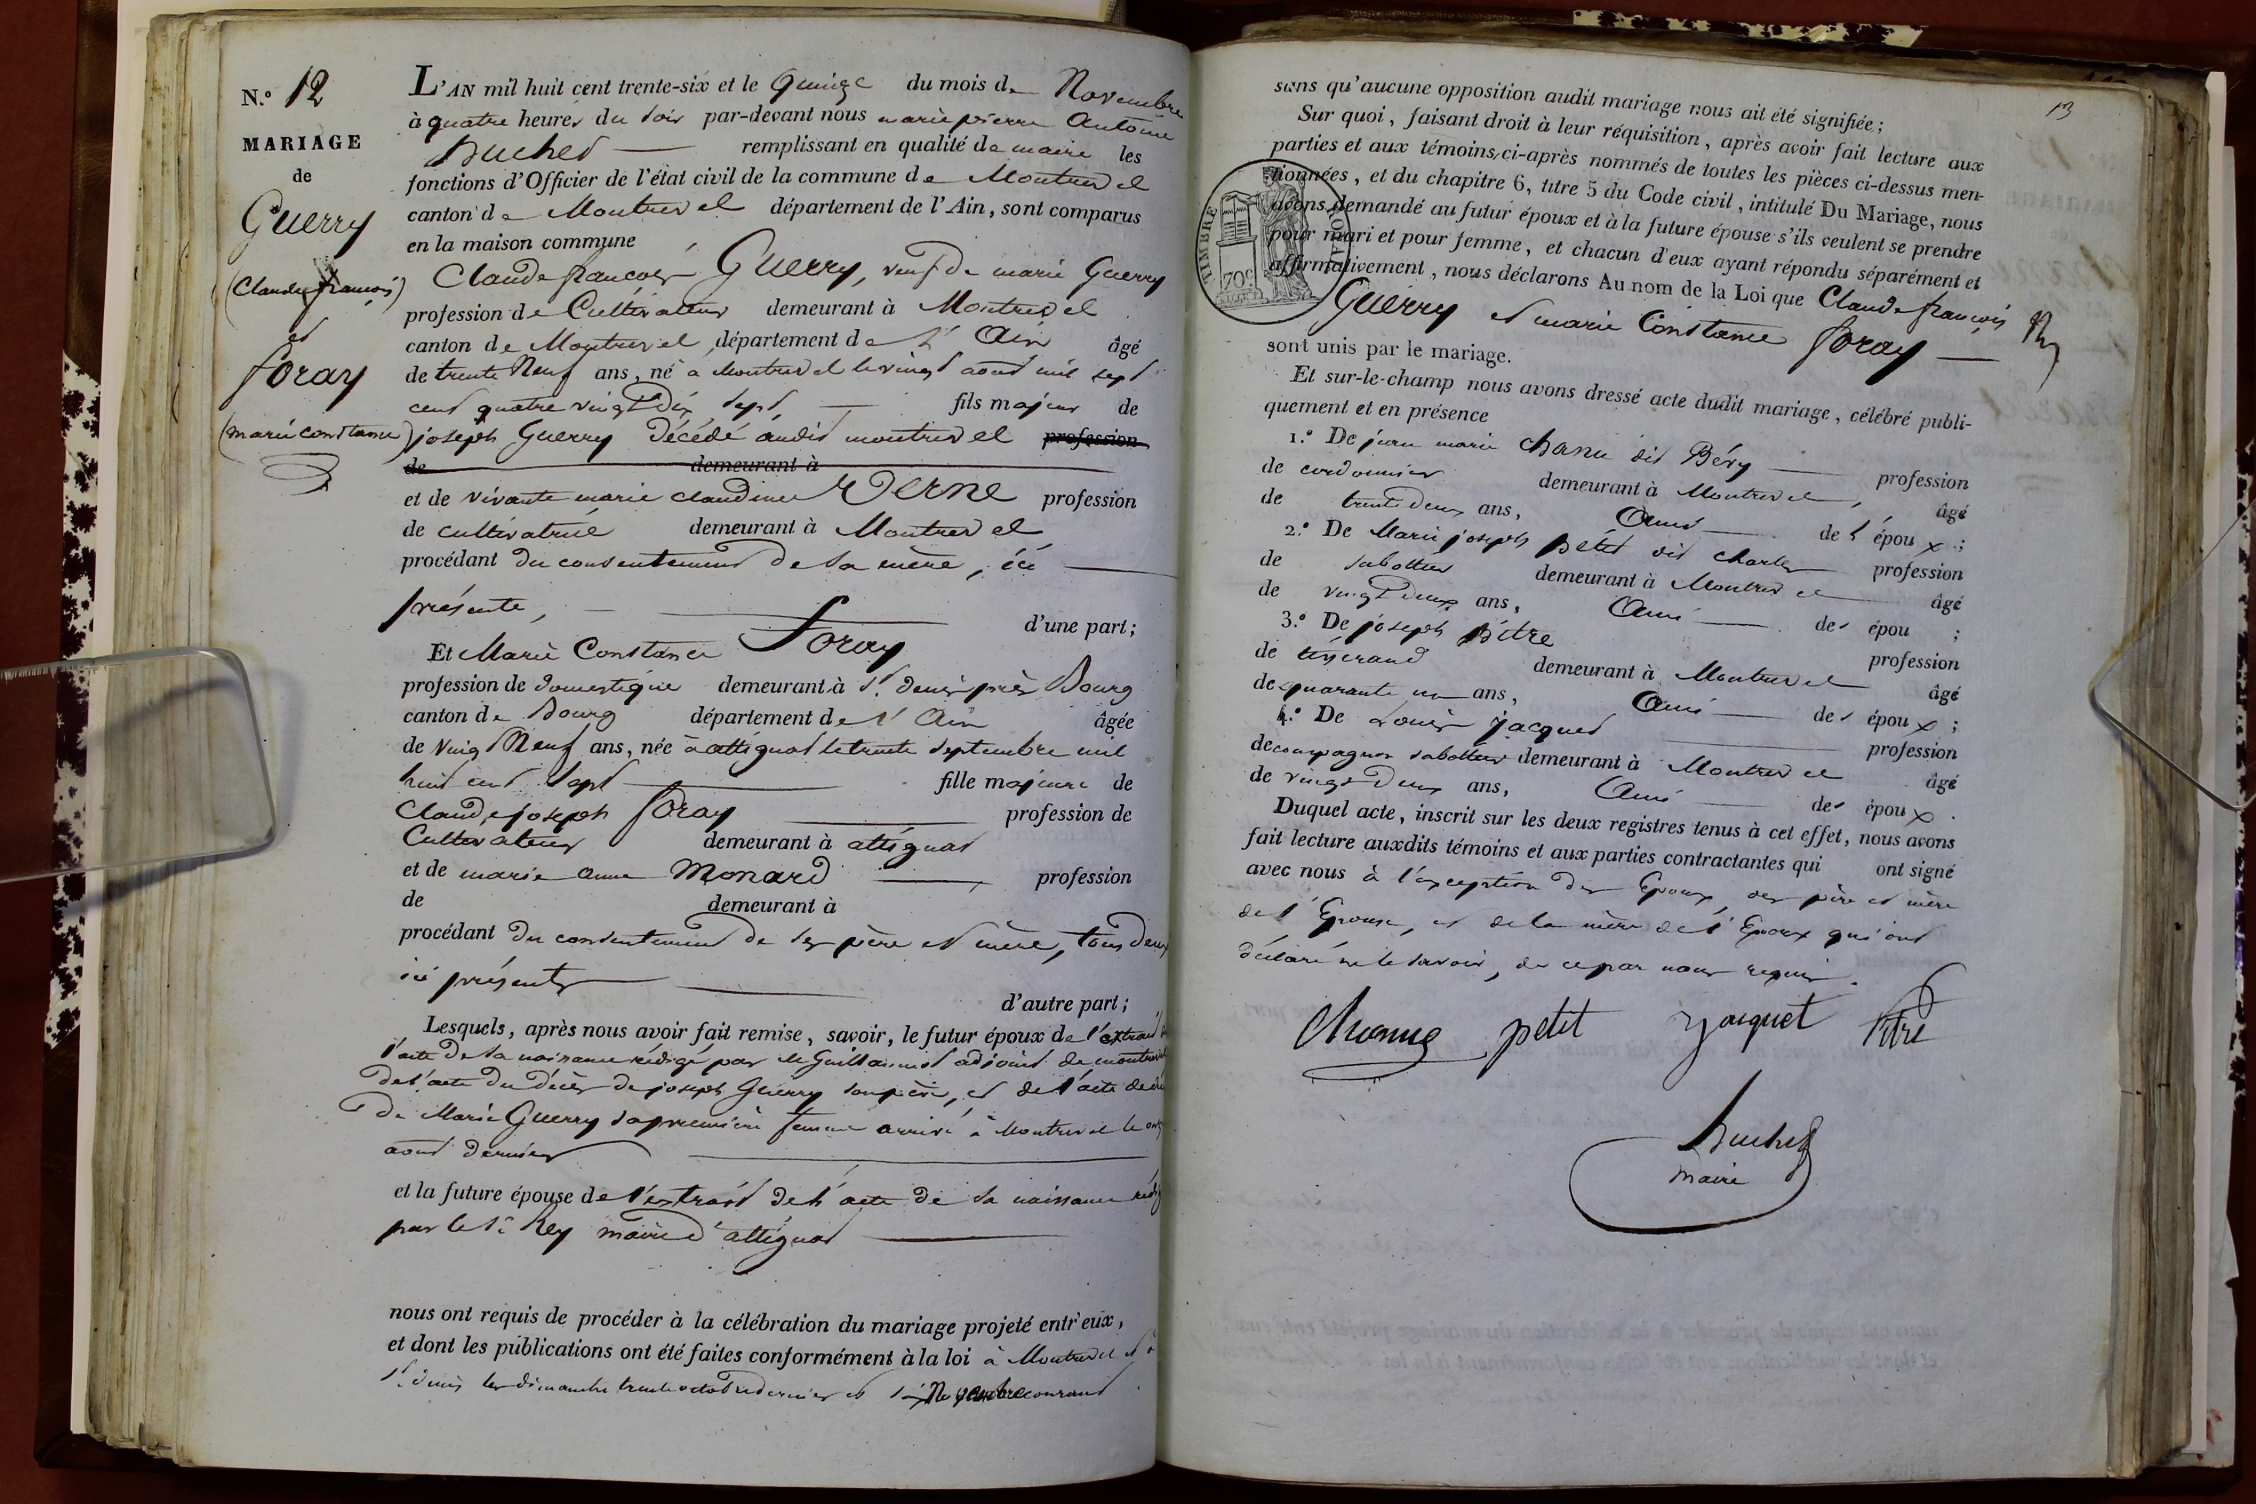 N.º 12
MARIAGE
de
Guerry
(Claude françois)
et
foray
(marie constance)
L'AN mil huit cent trente-six et le quinze du mois de Novembre
à quatre heures du soir par-devant nous marie pierre Antoine
Buchet remplissant en qualité de maire les
fonctions d'Officier de l'état civil de la commune de Montrevel
canton de Montrevel département de l'Ain, sont comparus
en la maison commune
Claude françois Guerry, veuf de marie Guerry
profession de Cultivateur demeurant à Montrevel
canton de Montrevel département de l'Ain âgé
de trente Neuf ans, né à Montrevel le vingt aout mil sept
cent quatre vingt dix sept, fils majeur de
joseph Guerry décédé audit montrevel profession
de demeurant à
et de vivante marie claudine Verne profession
de cultivatrice demeurant à Montrevel
procédant du consentement de sa mère, ici
présente, d'une part;
Et Marie Constance foray
profession de domestique demeurant à St. denis près Bourg
canton de Bourg département de l'Ain âgée
de vingt Neuf ans, née à attignat le trente septembre mil
huit cent sept fille majeure de
Claude joseph foray profession de
Cultivateur demeurant à attignat
et de marie anne Monard profession
de demeurant à
procédant du consentement de ses père et mère, tous deux
ici présents d'autre part;
Lesquels, après nous avoir fait remise, savoir, le futur époux de l'extrait de
l'acte de sa naissance rédigé par Mr Guillaumot adjoint de montrevel
de l'acte du décès de joseph Guerry son père, et de l'acte de décès
de Marie Guerry sa première femme arrivé à Montrevel le onze
aout dernier
et la future épouse de l'extrait de l'acte de sa naissance rédigé
par le Sr. Rey maire d'attignat
nous ont requis de procéder à la célébration du mariage projeté entr'eux,
et dont les publications ont été faites conformément à la loi à Montrevel et à
St. denis les dimanches trente octobre dernier et six Novembre courant
13
sans qu'aucune opposition audit mariage nous ait été signifiée;
Sur quoi, faisant droit à leur réquisition, après avoir fait lecture aux
parties et aux témoins ci-après nommés de toutes les pièces ci-dessus men-
tionnées, et du chapitre 6, titre 5 du Code civil, intitulé Du Mariage, nous
avons demandé au futur époux et à la future épouse s'ils veulent se prendre
pour mari et pour femme, et chacun d'eux ayant répondu séparément et
affirmativement, nous déclarons Au nom de la Loi que Claude françois
Guerry et marie Constance foray
TIMBRE ROYAL
70c.
sont unis par le mariage.
Et sur-le-champ nous avons dressé acte dudit mariage, célébré publi-
quement et en présence
1.º De jean marie Chanu dit Béry profession
de cordonnier demeurant à Montrevel, âgé
de trente deux ans, Ami de l'époux;
2.º De Marie joseph petit dit charles profession
de sabottier demeurant à Montrevel âgé
de vingt deux ans, Ami des épou ;
3.º De joseph pitre profession
de tisserand demeurant à Montrevel âgé
de quarante un ans, Ami des époux;
4.º De Louis jacquet profession
de compagnon sabottier demeurant à Montrevel âgé
de vingt deux ans, Ami des époux.
Duquel acte, inscrit sur les deux registres tenus à cet effet, nous avons
fait lecture auxdits témoins et aux parties contractantes qui ont signé
avec nous à l'exception des Epoux, des père et mère
de l'Epouse, et de la mère de l'Epoux qui ont
déclaré ne le savoir, de ce par nous requis.
petit jacquet Pitre
Buchet
Maire